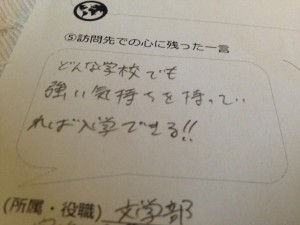 ⑤訪問先での心に残った一言
どんな学校でも
強い気持ちを持ってい
れば入学できる!!
(所属・役職) 文学部